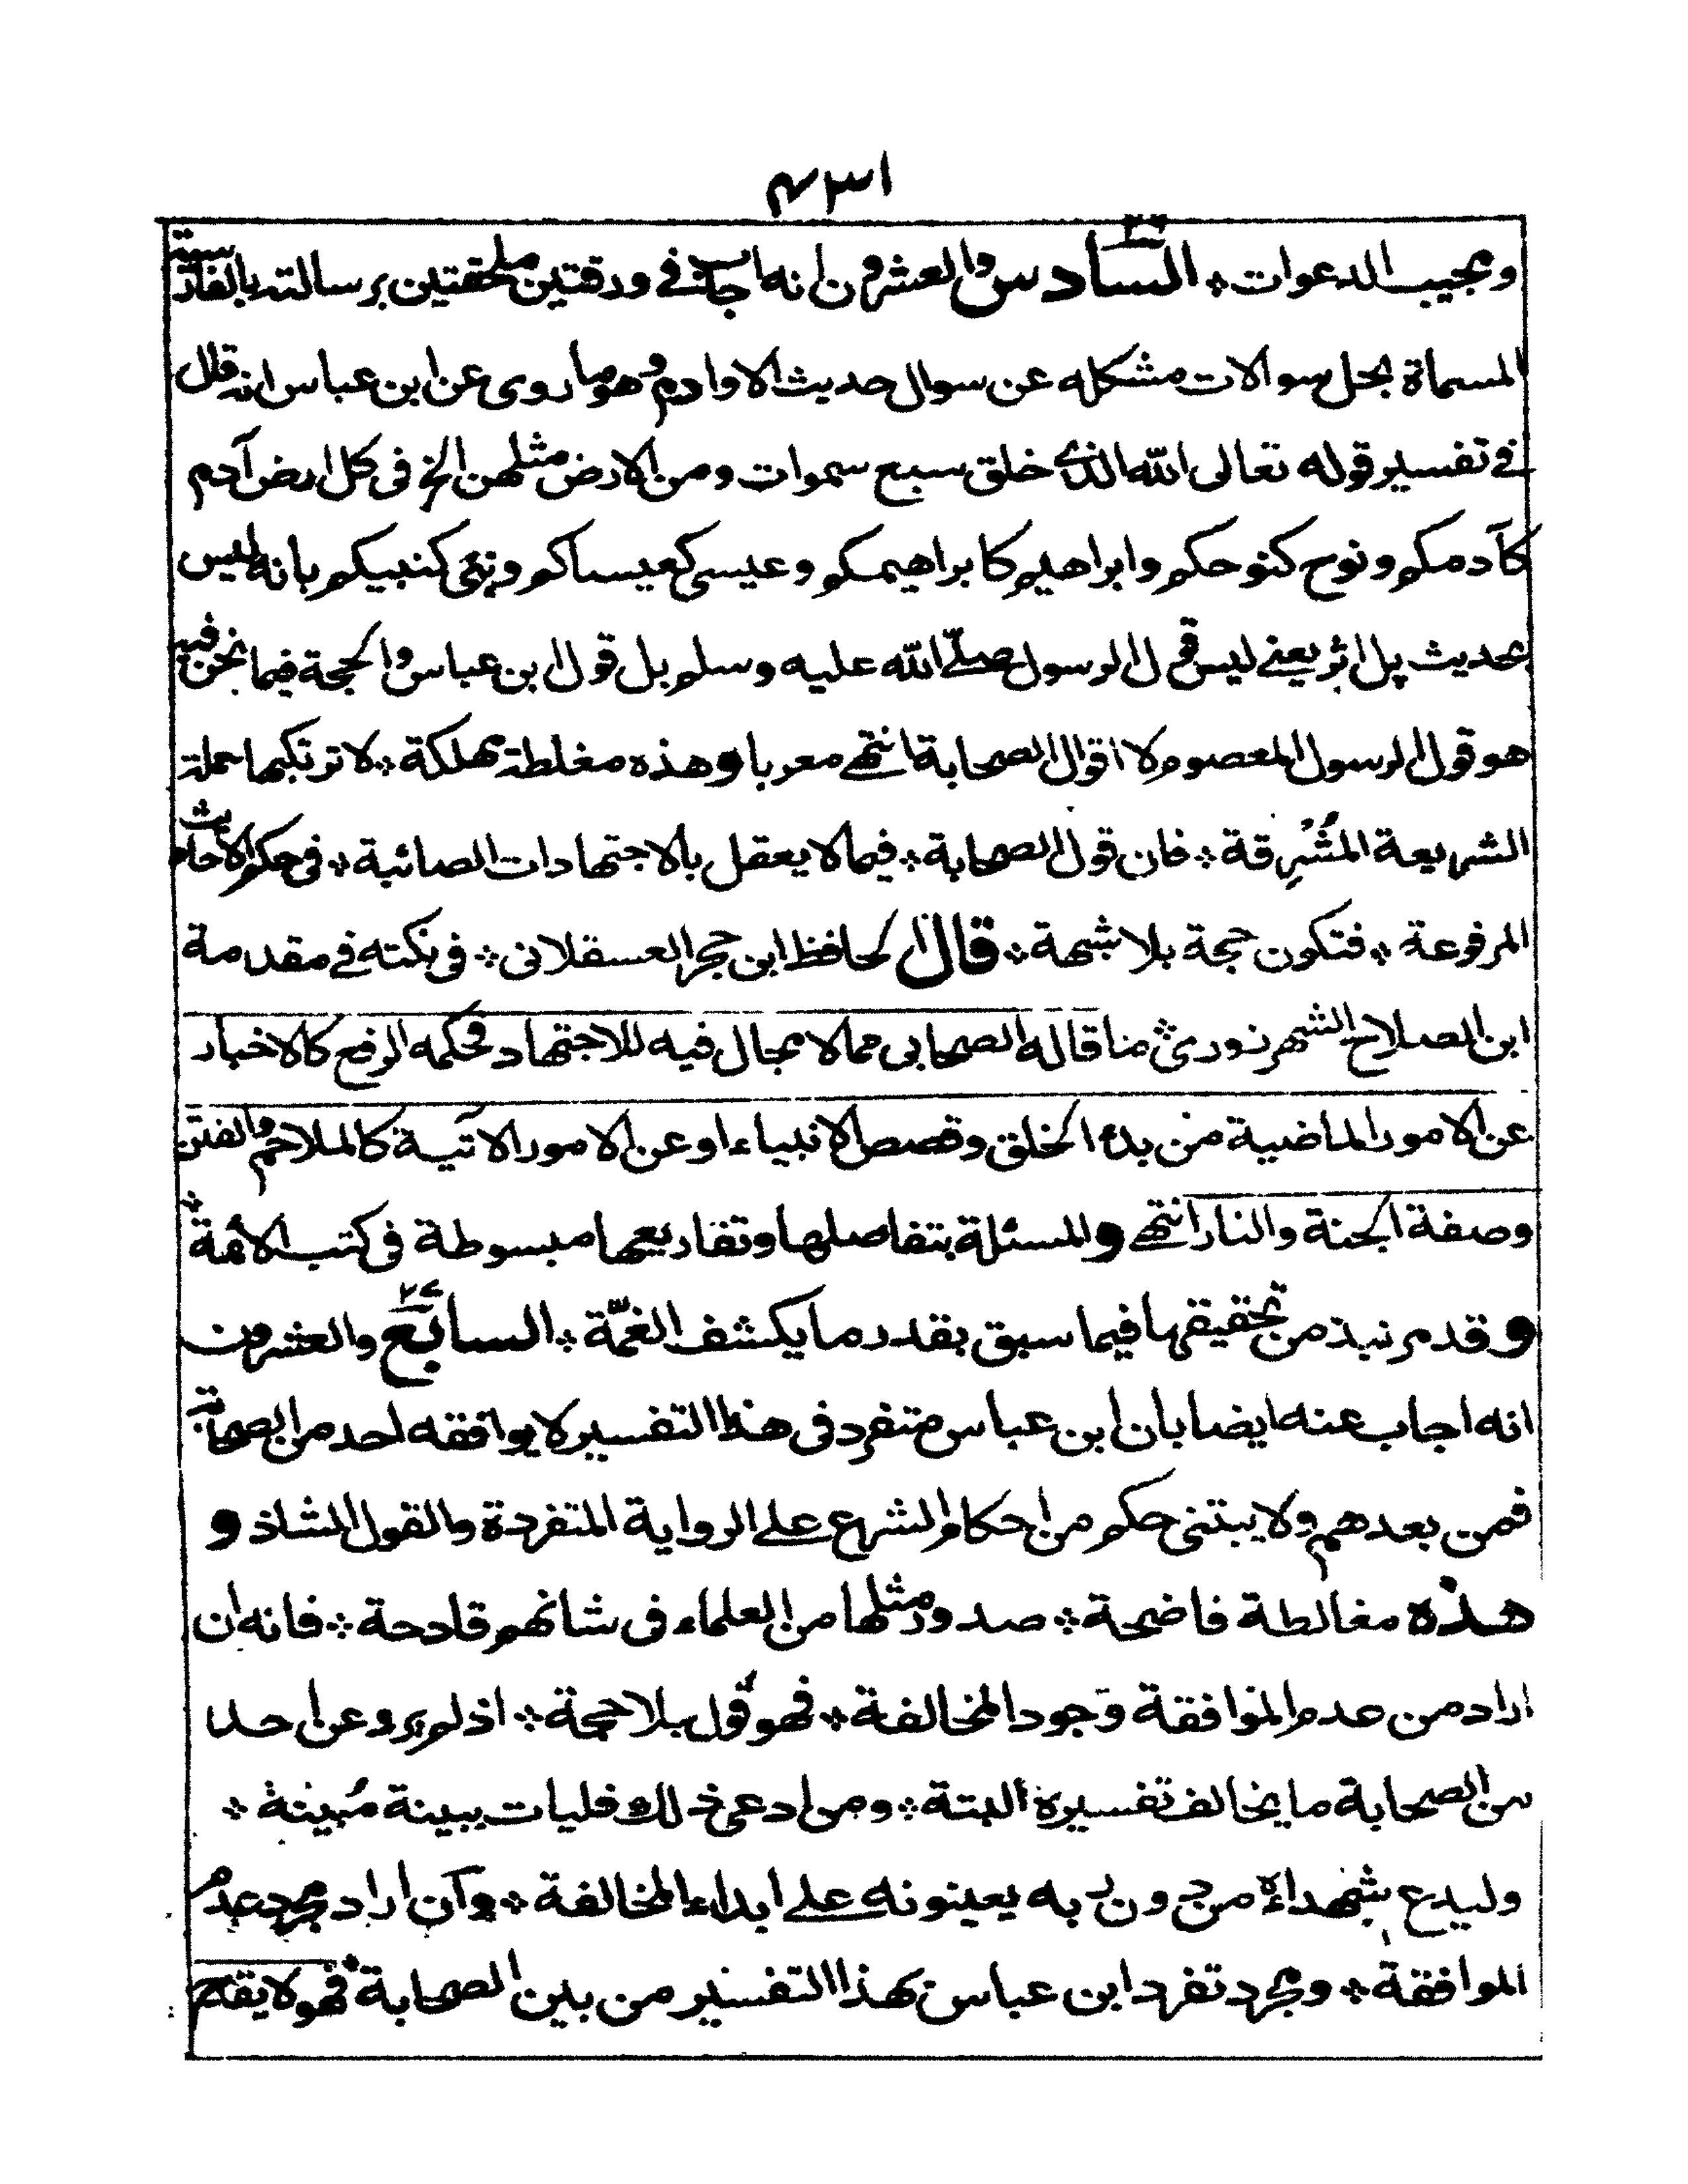 ١٣٤
ومجيب الدعوات ۞ السادس والعشرون انه اجاب في ورقتين ملحقتين برسالته بالفارسية
المسماة بحل سوالات مشكله عن سوال حديث الاوادم وهو ما روى عن ابن عباس انه قال
في تفسير قوله تعالى الله الذي خلق سبع سموات ومن الارض مثلهن الخ في كل ارض آدم
كآدمكم ونوح كنوحكم وابراهيم كابراهيمكم وعيسى كعيساكم ونبي كنبيكم بانه ليس
بحديث بل اثر يعني ليس قول الرسول صلى الله عليه وسلم بل قول ابن عباس والحجة فيما نحن فيه
هو قول الرسول المعصوم لا اقوال الصحابة انتهى معربا وهذه مغلطة مهلكة ۞ لا ترتكبها حملة
الشريعة المُشْرِقة ۞ فان قول الصحابة ۞ فيما لا يعقل بالاجتهادات الصائبة ۞ في حكم الاحاديث
المرفوعة ۞ فتكون حجة بلا شبهة ۞ قال الحافظ ابن حجر العسقلانى ۞ فى نكته في مقدمة
ابن الصلاح الشهرزورى ۞ ما قاله الصحابى مما لا مجال فيه للاجتهاد فحكمه الرفع كالاخبار
عن الامور الماضية من بدء الخلق وقصص الانبياء او عن الامور الآتية كالملاحم والفتن
وصفة الجنة والنار انتهى والمسئلة بتفاصلها وتفاريعها مبسوطة فى كتب الائمة ۞
وقد مر نبذ من تحقيقها فيما سبق بقدر ما يكشف الغمّة ۞ السابع ٢٧ والعشرون
انه اجاب عنه ايضا بان ابن عباس متفرد فى هذا التفسير لا يوافقه احد من الصحابة
فمن بعدهم ولا يبتنى حكم من احكام الشرع على الرواية المتفردة والقول الشاذ و
هذه مغالطة فاضحة ۞ صدور مثلها من العلماء فى شانهم قادحة ۞ فانه ان
اراد من عدم الموافقة وجود المخالفة ۞ فهو قول بلا حجة ۞ اذ لم يرو عن احد
من الصحابة ما يخالف تفسيره البتة ۞ ومن ادعى ذلك فليات ببينة مُبينة ۞
وليدع شهداءه من دون ربه يعينونه على ابداء المخالفة ۞ وآن اراد مجرد عدم
الموافقة ۞ ومجرد تفرد ابن عباس بهذا التفسير من بين الصحابة فهو لا يقدح